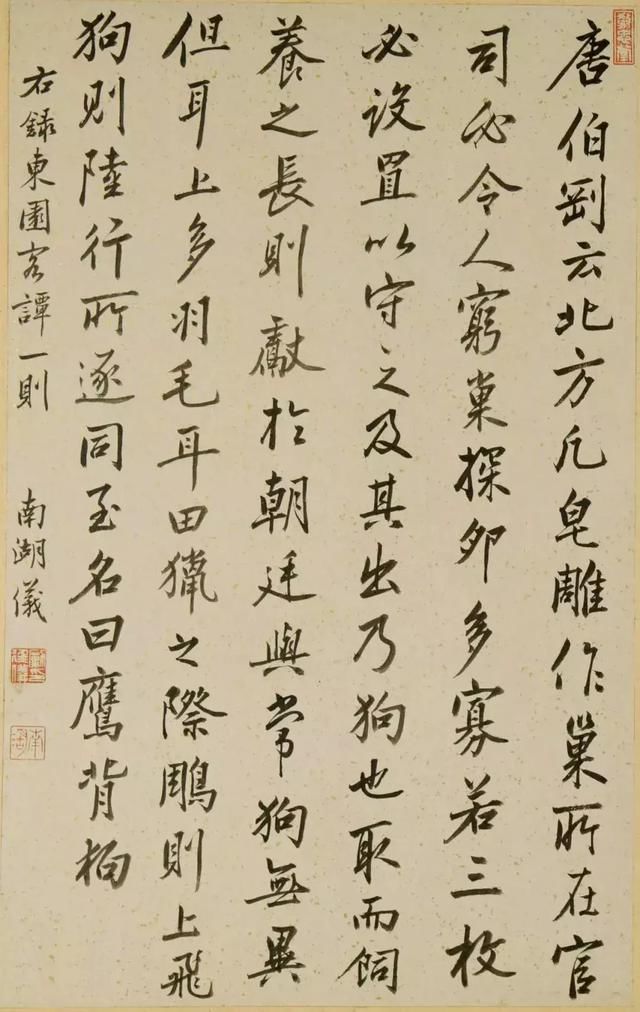 唐伯剛云北方凡皂雕作巢所在官
司必令人窮巢探卵多寡若三枚
必設置以守之及其出乃狗也取而飼
養之長則獻於朝廷與常狗無異
但耳上多羽毛耳田獵之際鵰則上飛
狗則陸行所逐同至名曰鷹背狗
右錄東園客譚一則
南湖儀